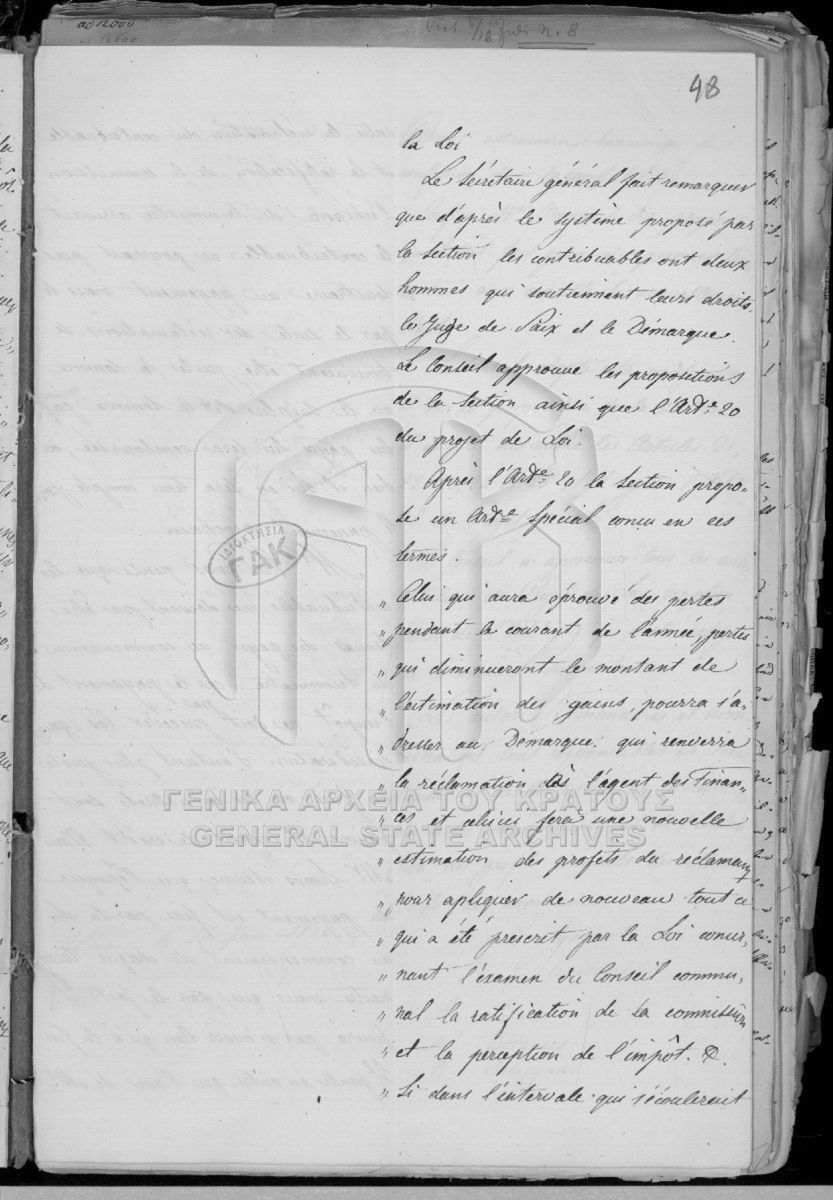 48
la Loi
Le Sécrétaire général fait remarquer
que d'après le système proposé par
la Section les contribuables ont deux
hommes qui soutiennent leurs droits.
le Juge de Paix et le Démarque.
Le Conseil approuve les propositions
de la Section ainsi que l'Arde 20
du projet de Loi.
Après l'Arde 20 la Section propo-
se un Arde spécial conçu en ces
termes.
„ Celui qui aura éprouvé des pertes
„ pendant le courant de l'année, pertes
„ qui diminueront le montant de
„ l'éstimation des gains, pourra s'a-
„ dresser au Démarque qui renverra
„ la réclamation à l'agent des Finan-
„ ces et celui ci fera une nouvelle
„ estimation des profits du réclamant
„ pour apliquer de nouveau tout ce
„ qui a été prescrit par la Loi concer-
„ nant l'éxamen du Conseil commu-
„ nal la ratification de la commission
„ et la perception de l'impôt. &.
„ Si dans l'intervale qui s'écoulerait
ΙΔΙΟΚΤΗΣΙΑ
ΓΑΚ
ΓΕΝΙΚΑ ΑΡΧΕΙΑ ΤΟΥ ΚΡΑΤΟΥΣ
GENERAL STATE ARCHIVES